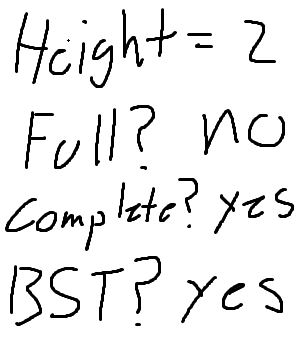 Height = 2
Full? no
Complete? yes
BST? yes